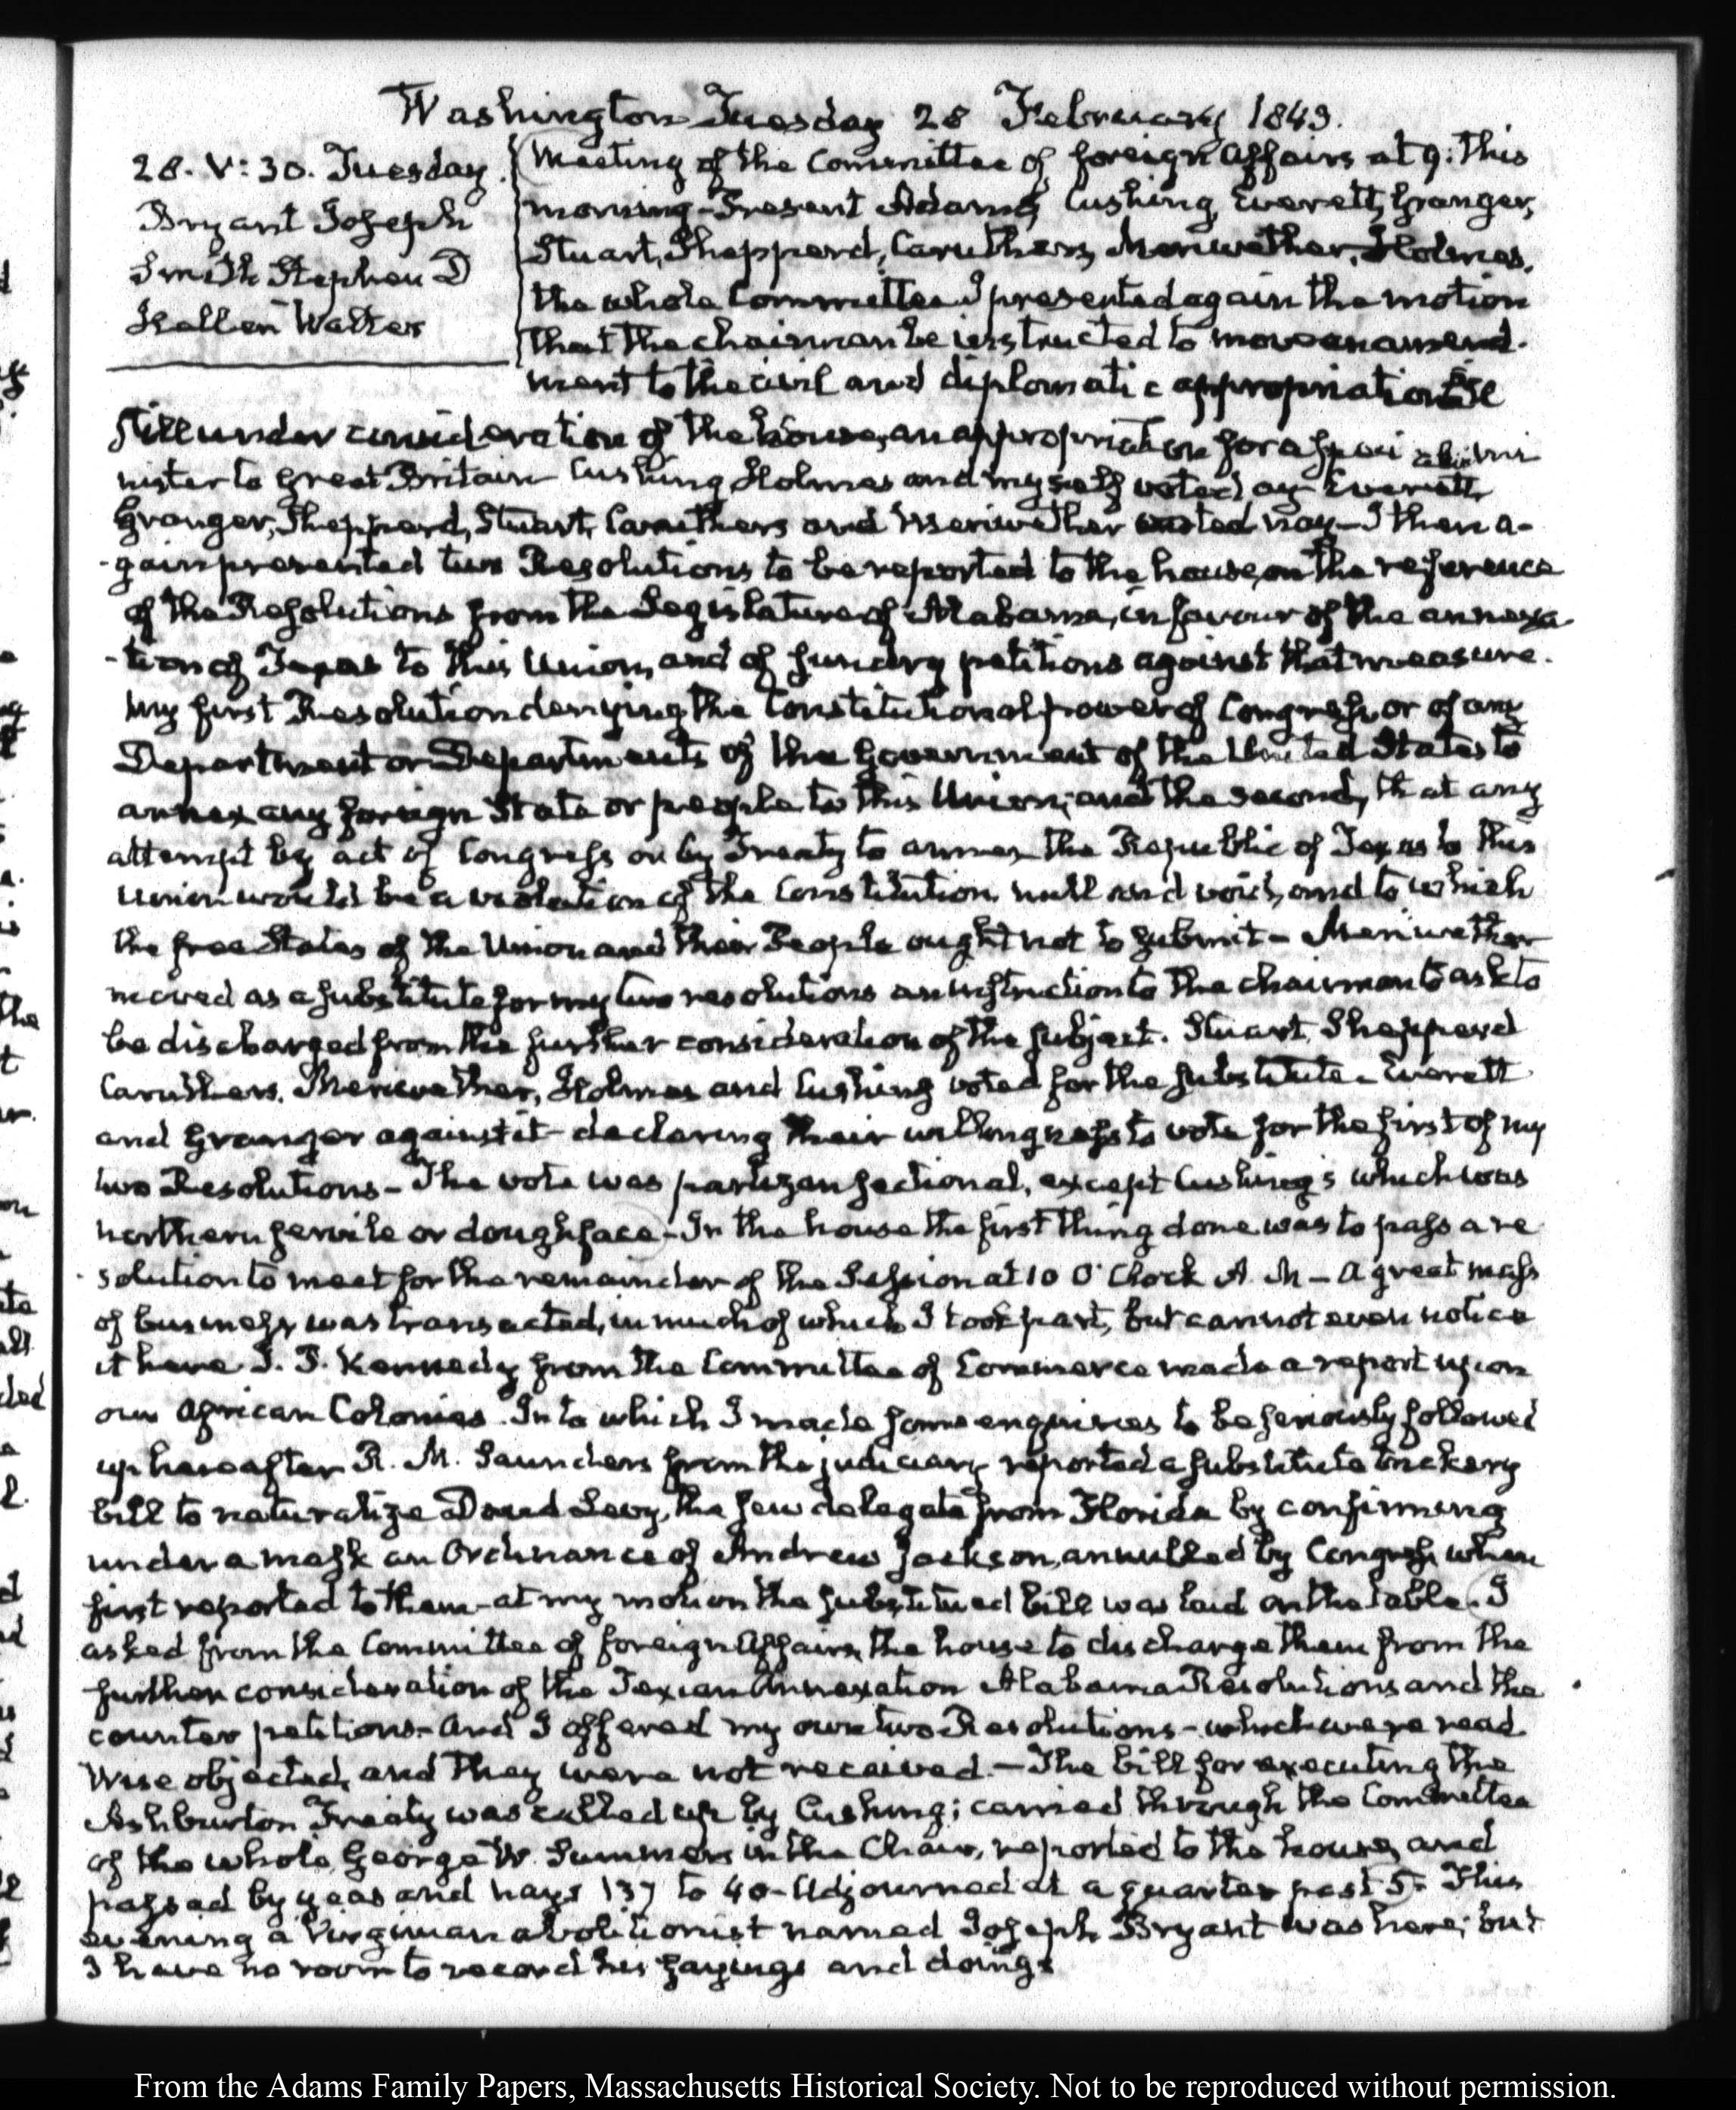 Washington Tuesday 28 February 1843.
28. V:30. Tuesday.
Bryant Joseph
Smith Stephen D
Hellen Walter
Meeting of the Committee of foreign Affairs at 9: this
morning—Present Adams, Cushing, Everett, Granger,
Stuart, Shepperd, Caruthers, Meriwether, Holmes,
the whole Committee I presented again the motion
that the chairman be instructed to move an amend-
ment to the civil and diplomatic appropriation bill
still under consideration of the house, an appropriation for a special mi
nister to Great Britain Cushing Holmes and myself voted ay Everett,
Granger, Shepperd, Stuart, Caruthers and Meriwether voted nay—I then a-
-gain presented two Resolutions to be reported to the house, on the reference
of the Resolutions from the Legislature of Alabama, in favour of the annexa-
-tion of Texas to this Union, and of sundry petitions against that measure.
My first Resolution denying the Constitutional power of Congress, or of any
Department or Departments of the Government of the United States to
annex any foreign State or people to this Union; and the second, that any
attempt by act of Congress or by Treaty to annex the Republic of Texas to this
Union would be a violation of the Constitution, null and void, and to which
the free States of the Union and their People ought not to submit—Meriwether
moved as a substitute for my two resolutions an instruction to the chairman to ask to
be discharged from the further consideration of the subject. Stuart, Shepperd
Caruthers, Meriwether, Holmes and Cushing voted for the substitute—Everett
and Granger against it—declaring their willingness to vote for the first of my
two Resolutions—The vote was partizan sectional, except Cushing's which was
northern servile or doughface—In the house the first thing done was to pass a re
-solution to meet for the remainder of the Session at 10 O'Clock A. M—A great mass
of business was transacted, in much of which I took part, but cannot even notice
it here J. P. Kennedy from the Committee of Commerce made a report upon
our African Colonies. Into which I made some enquiries to be seriously followed
up hereafter R. M. Saunders from the judiciary reported a substitute trickery
bill to naturalize David Levy, the Jew delegate from Florida by confirming
under a mask an Ordinance of Andrew Jackson, annulled by Congress when
first reported to them—at my motion the substituted bill was laid on the table. I
asked from the Committee of foreign Affairs, the house to discharge them from the
further consideration of the Texian Annexation Alabama Resolutions and the
counter petitions—And I offered my own two Resolutions—which were read
Wise objected, and they were not received.—The bill for executing the
Ashburton Treaty was called up by Cushing; carried through the Committee
of the whole, George W. Summers in the Chair, reported to the house, and
passed by yeas and nays 137 to 40—Adjourned at a quarter past 5. This
evening a Virginian abolitionist named Joseph Bryant was here; but
I have no room to record his sayings and doings
From the Adams Family Papers, Massachusetts Historical Society. Not to be reproduced without permission.